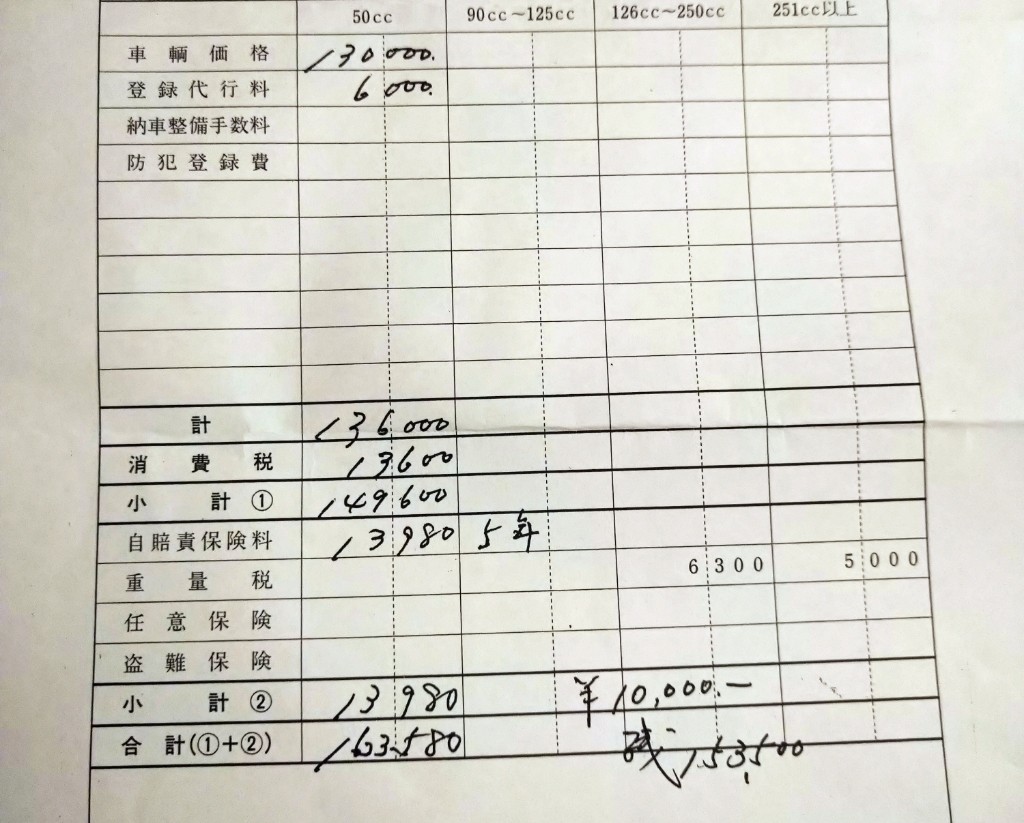 50cc 90cc～125cc 126cc～250cc 251cc以上
車輌価格 130000.
登録代行料 6000.
納車整備手数料
防犯登録費
計 136000
消費税 13600
小計① 149600
自賠責保険料 13980 5年
重量税 6300 5000
任意保険
盗難保険
小計② 13980 ¥10,000.-
合計(①+②) 163,580 残 153,500